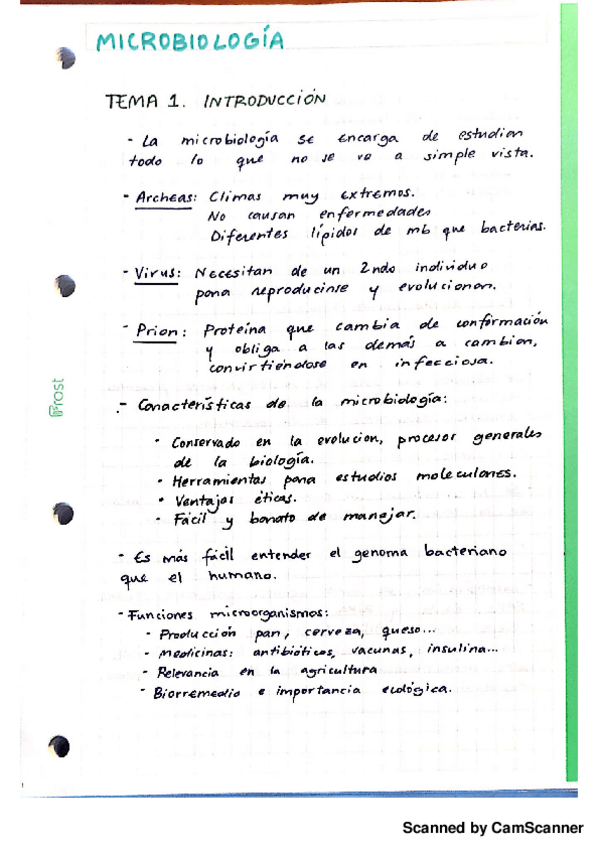 MICROBIOLOGÍA
TEMA 1. INTRODUCCIÓN
- La microbiología se encarga de estudiar
todo lo que no se ve a simple vista.
- Archeas: Climas muy extremos.
No causan enfermedades
Diferentes lípidos de mb que bacterias.
- Virus: Necesitan de un 2ndo individuo
para reproducirse y evolucionar.
- Prion: Proteína que cambia de conformación
y obliga a las demás a cambiar,
convirtiéndose en infecciosa.
- Características de la microbiología:
· Conservado en la evolucion, procesos generales
de la biología.
· Herramientas para estudios moleculares.
· Ventajas éticas.
· Fácil y barato de manejar.
- Es más fácil entender el genoma bacteriano
que el humano.
- Funciones microorganismos:
- Producción pan, cerveza, queso...
- Medicinas: antibióticos, vacunas, insulina...
- Relevancia en la agricultura
- Biorremedio e importancia ecológica.
Prast
Scanned by CamScanner